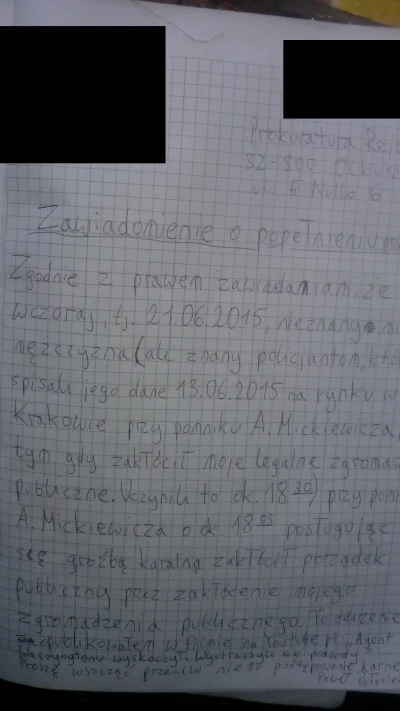 Prokuratura Rej
32-300 Olkusz
ul. F. Nullo 6
Zawiadomienie o popełnieniu pr
Zgodnie z prawem zawiadamiam, że
wczoraj, tj. 21.06.2015, nieznany mi
mężczyzna (ale znany policjantom, któ
spisali jego dane 13.06.2015 na rynku w
Krakowie przy pomniku A. Mickiewicza,
tym gdy zakłócił moje legalne zgromad
publiczne. Uczynili to ok. 18 30) przy pom
A. Mickiewicza o ok. 18 03 posługując
się groźbą karalną zakłócił porządek
publiczny przez zakłócenie mojego
zgromadzenia publicznego. To zdarzenie
opublikowałem w filmie na YouTube pt. „Agent
Waszyngtonu wyskoczył. Wystraszyli się prawdy”
Proszę wszcząć przeciw niemu postępowanie karne
Paweł